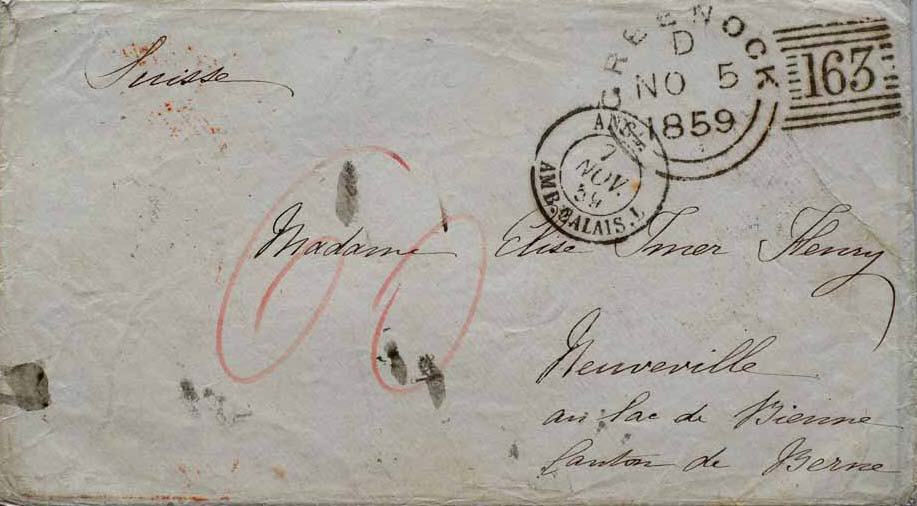 Suisse
GREENOCK
D
NO 5
1859
163
ANGL.
7
NOV.
59
AMB. CALAIS. L
60
Madame Elise Imer Henry
Neuveville
au lac de Bienne
Canton de Berne